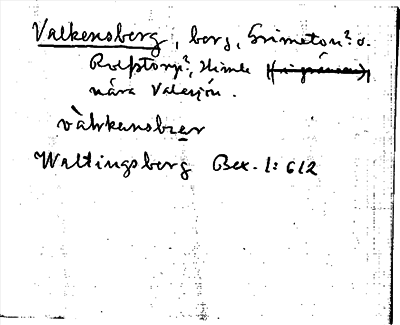 Valkensberg, berg, Grimeton? o.
Rolfstorp?, Himle
nära Valasjön.
vàlkansbær
Waltingsberg Bex. 1:612